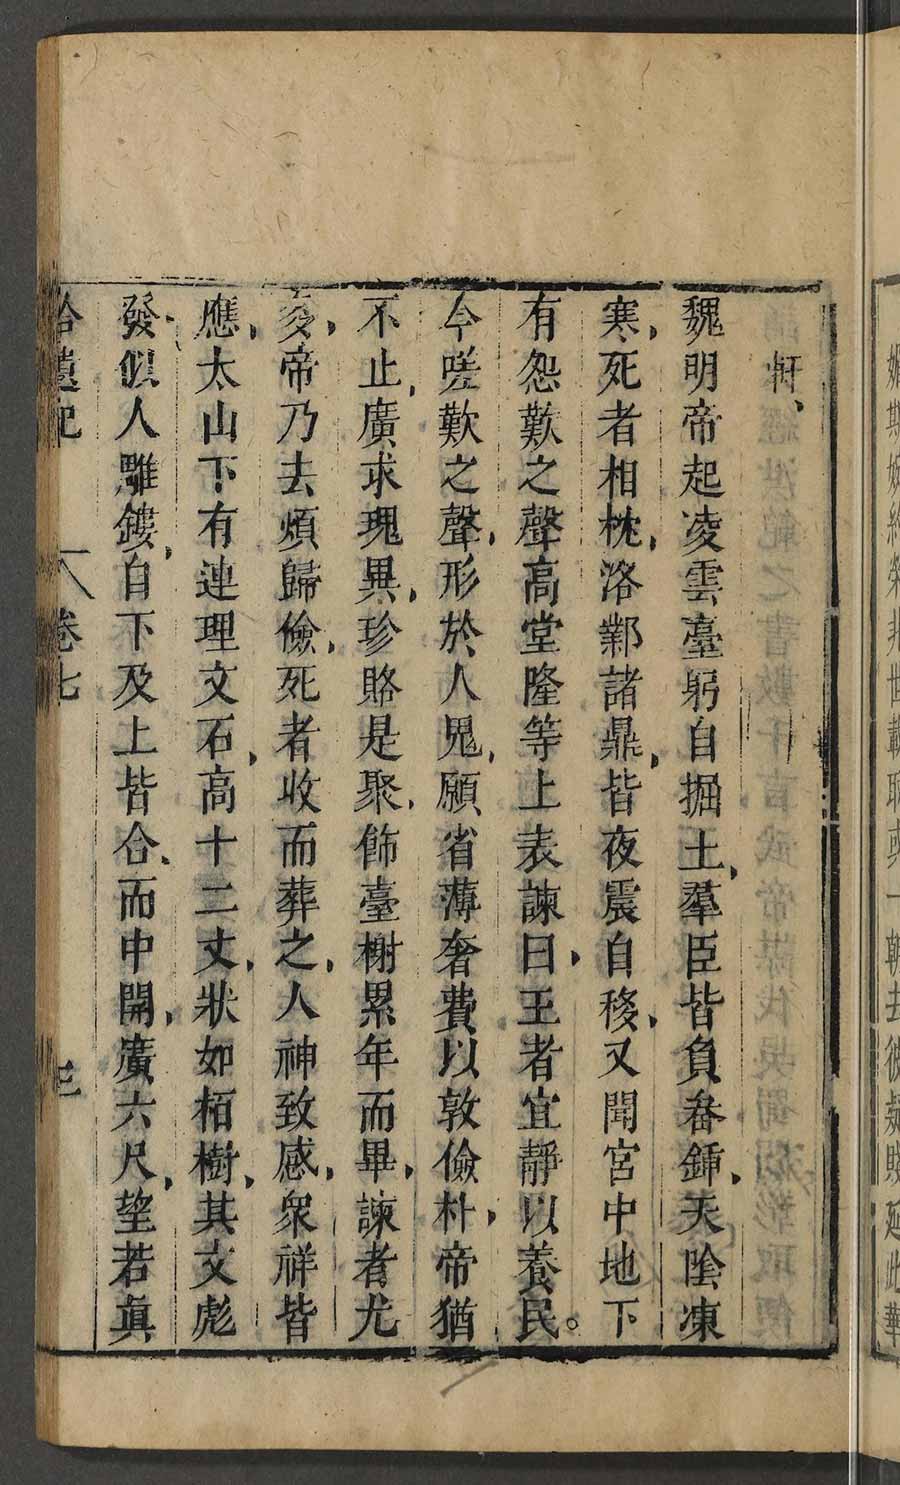 軒、
魏明帝起凌雲臺躬自掘土，羣臣皆負畚鍤，天陰凍
寒，死者相枕，洛鄴諸鼎，皆夜震自移，又聞宮中地下
有怨歎之聲高堂隆等上表諫曰，王者宜靜以養民。
今嗟歎之聲，形於人鬼，願省薄奢費以敦儉朴，帝猶
不止，廣求瑰異，珍賂是聚，飾臺榭累年而畢，諫者尤
衆，帝乃去煩歸儉，死者收而葬之，人神致感，衆祥皆
應，太山下有連理文石，高十二丈，狀如栢樹，其文彪
發，似人雕鏤，自下及上皆合、而中開，廣六尺，望若眞
拾遺記 卷七 三